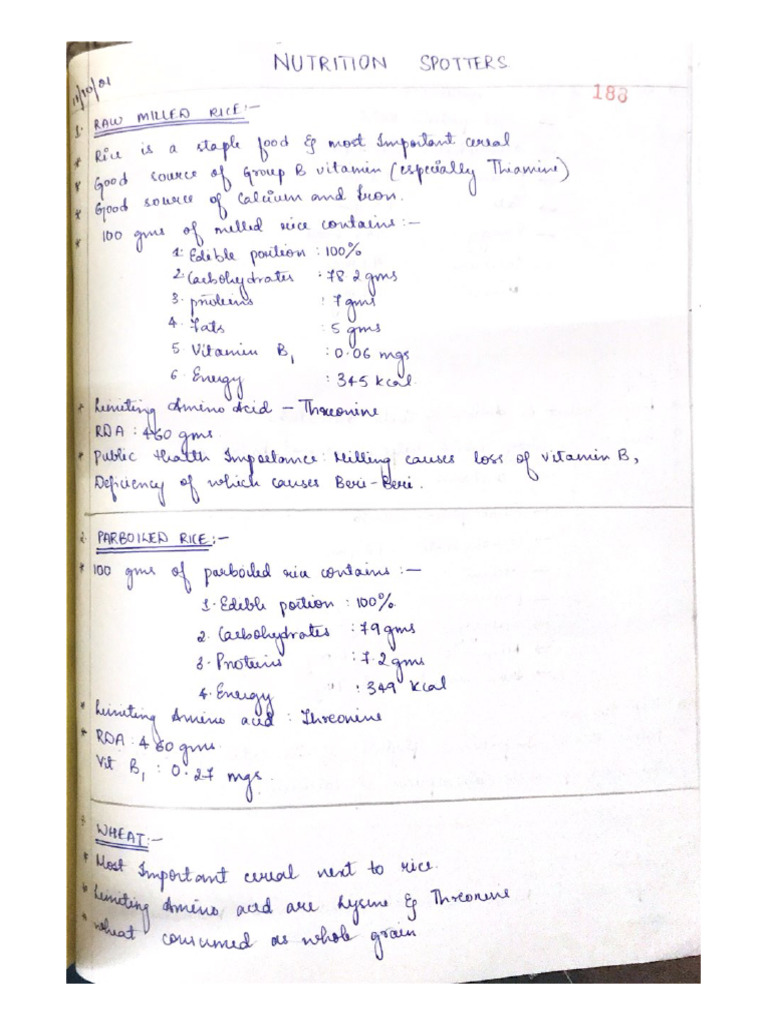 NUTRITION SPOTTERS
188
11/10/01
1. RAW MILLED RICE:-
* Rice is a staple food & most Important cereal
* Good source of Group B vitamin (especially Thiamine)
* Good source of Calcium and Iron.
* 100 gms of milled rice contains:-
1. Edible portion : 100%
2. Carbohydrates : 78.2 gms
3. proteins : 7 gms
4. Fats : 5 gms
5. Vitamin B1 : 0.06 mgs
6. Energy : 345 kcal
* Limiting Amino Acid - Threonine
RDA : 460 gms
* Public Health Importance: Milling causes loss of vitamin B1
Deficiency of which causes Beri-Beri.
2. PARBOILED RICE:-
* 100 gms of parboiled rice contains:-
1. Edible portion : 100%
2. Carbohydrates : 79 gms
3. Proteins : 7.2 gms
4. Energy : 349 kcal
* Limiting Amino acid : Threonine
* RDA : 460 gms
Vit B1 : 0.27 mgs
3. WHEAT:-
* Most Important cereal next to rice.
* Limiting Amino acid are Lysine & Threonine
* Wheat consumed as whole grain